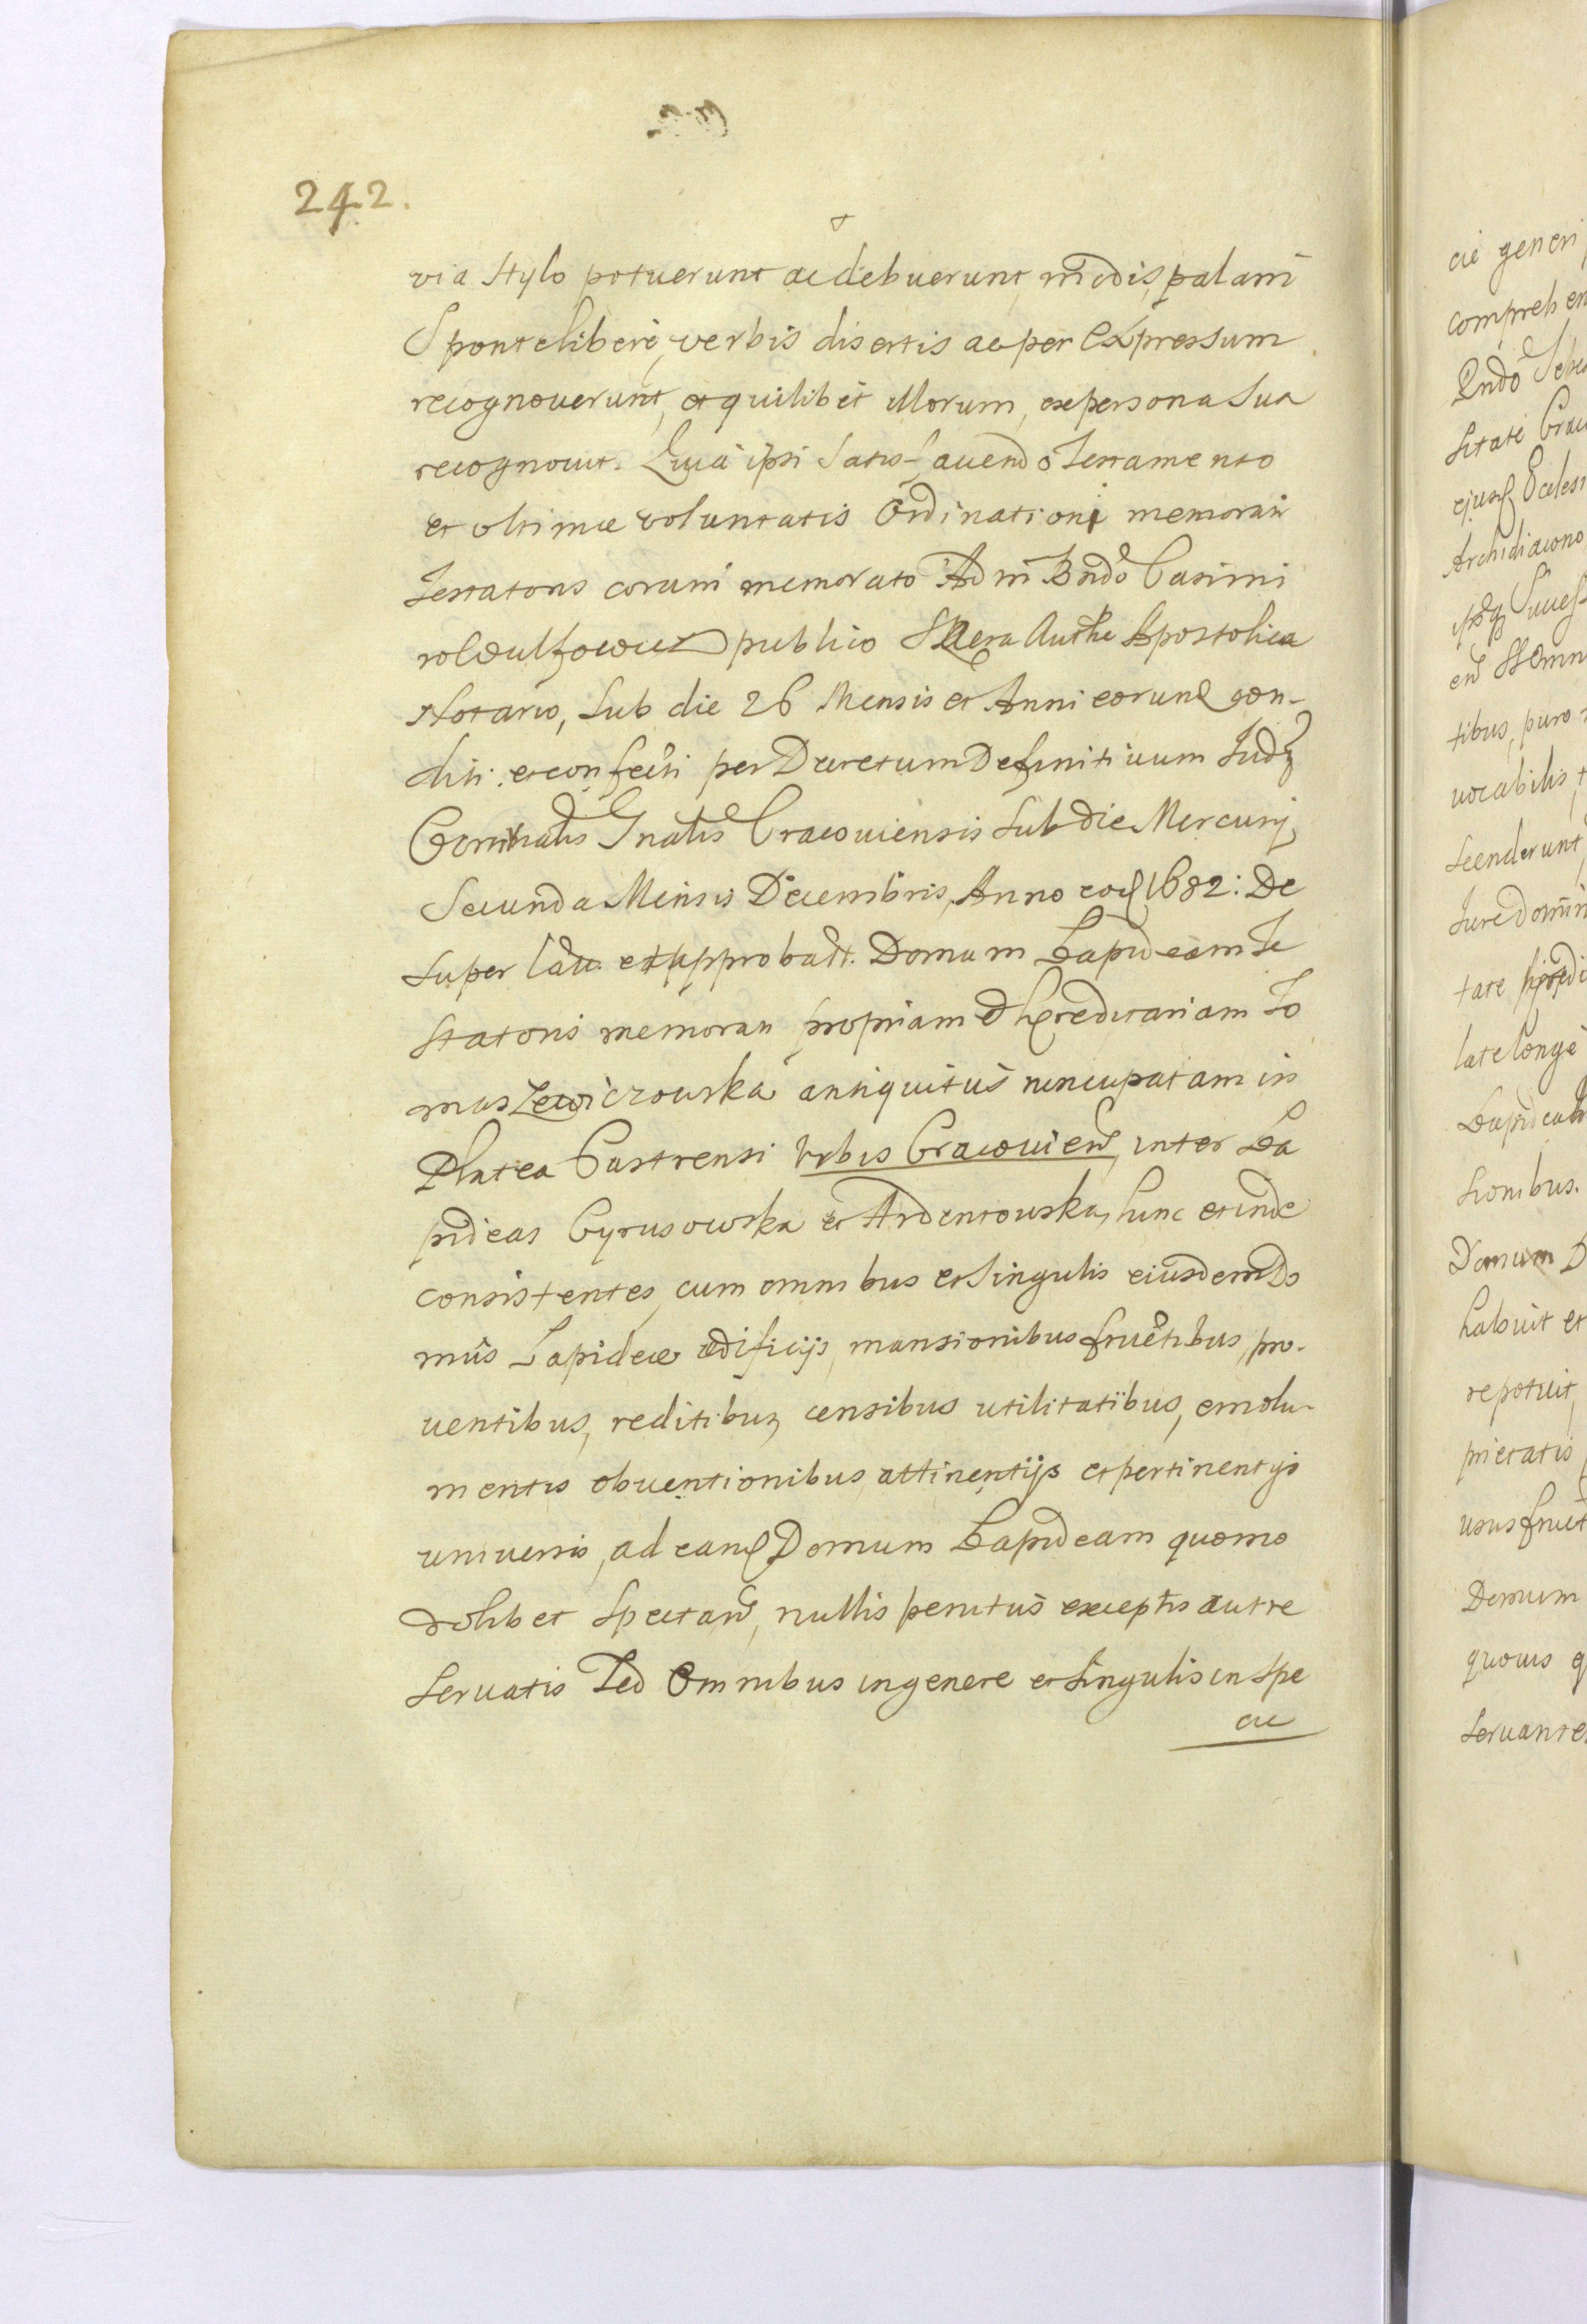 242.
via Stylo potuerunt ac debuerunt, modis, palam
Sponte libere, verbis disertis ac per Expressum
recognoverunt, et quilibet illorum, ex persona Sua
recognovit. Quia ipsi Satis-faciendo Testamento
et ultimae voluntatis Ordinationi memorati
Testatoris coram memorato Adm Rndo Casimi
publico SRaera Authe Apostolica
Notario, Sub die 26 Mensis et Anni eorund con-
diti et confecti per Decretum Definitiuum Judy
Gnalis Cracouiensis Sub die Mercurij
Secunda Mensis Decembris, Anno eod 1682: De
super lat. et approbatt. Domum Lapideam Te
statoris memorati propriam et hereditariam To
maszewiczowska antiquitus nuncupatam in
Platea Castrensi Vrbis Cracouien, inter La
pideas Cyrusowska et Ardentowska, hinc et inde
consistentes, cum omnibus et Singulis eiusdem Do
mus Lapideae aedificijs, mansionibus fructibus, pro-
uentibus, reditibus, censibus utilitatibus, emolu-
mentis obuentionibus, attinentijs et pertinentijs
uniuersis, ad eand Domum Lapideam quomo
dolibet Spectan, nullis penitus exceptis aut re
Seruatis Sed Omnibus in genere et Singulis in Spe
cie
cie generi
comprehen
Rndo
sitate Crac
ejusd Eccles
Archidiacono
Succes
tibus, puro
uocabilis
scenderunt
Jure Domin
tate
late longe
Lapidea
sionibus.
Domum D
habuit et
re potuit,
prietatis
usus fruct
Domum
quouis q
seruante